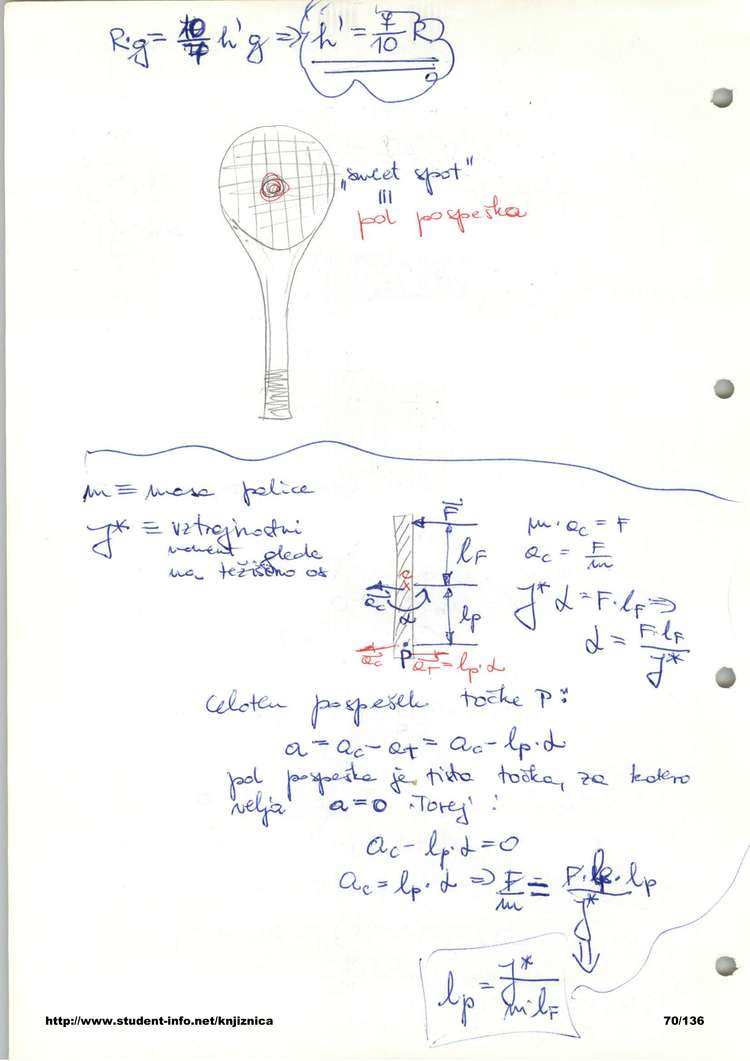 R·g = 10/7 h' g ⇒ h' = 7/10 R
„sweet spot"
≡
pol pospeška
m ≡ masa palice
J* ≡ vztrajnostni
moment glede
na težiščno os
F
l_F
a_c
α
l_p
a_c
P
a_T = l_p·α
m·a_c = F
a_c = F/m
J* α = F·l_F ⇒
α = F·l_F/J*
Celoten pospešek točke P:
a = a_c − a_T = a_c − l_p·α
pol pospeška je tista točka, za katero
velja a=0. Torej:
a_c − l_p·α = 0
a_c = l_p·α ⇒ F/m = F·l_F·l_p/J*
⇓
l_p = J*/m·l_F
http://www.student-info.net/knjiznica
70/136